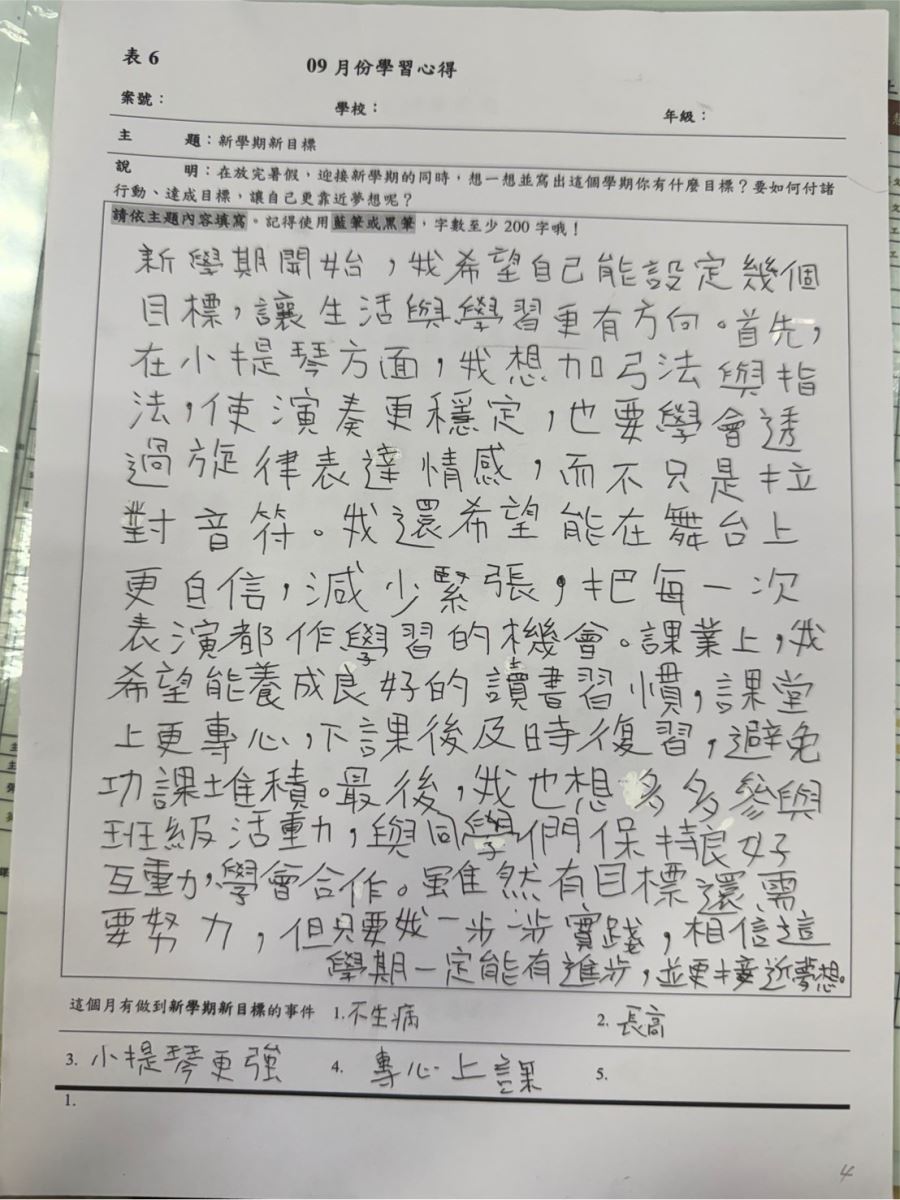 表 6
09 月份學習心得
案號： 學校： 年級：
主 題：新學期新目標
說 明：在放完暑假，迎接新學期的同時，想一想並寫出這個學期你有什麼目標？要如何付諸
行動、達成目標，讓自己更靠近夢想呢？
請依主題內容填寫。記得使用藍筆或黑筆，字數至少 200 字哦！
新學期開始，我希望自己能設定幾個
目標，讓生活與學習更有方向。首先，
在小提琴方面，我想加弓法與指
法，使演奏更穩定，也要學會透
過旋律表達情感，而不只是拉
對音符。我還希望能在舞台上
更自信，減少緊張，把每一次
表演都作學習的機會。課業上，我
希望能養成良好的讀書習慣，課堂
上更專心，下課後及時復習，避免
功課堆積。最後，我也想多多參與
班級活動，與同學們保持良好
互動，學會合作。雖然有目標還需
要努力，但只要我一步一步實踐，相信這
學期一定能有進步，並更接近夢想。
這個月有做到新學期新目標的事件 1.不生病 2. 長高
3. 小提琴更強 4. 專心上課 5.
1.
4